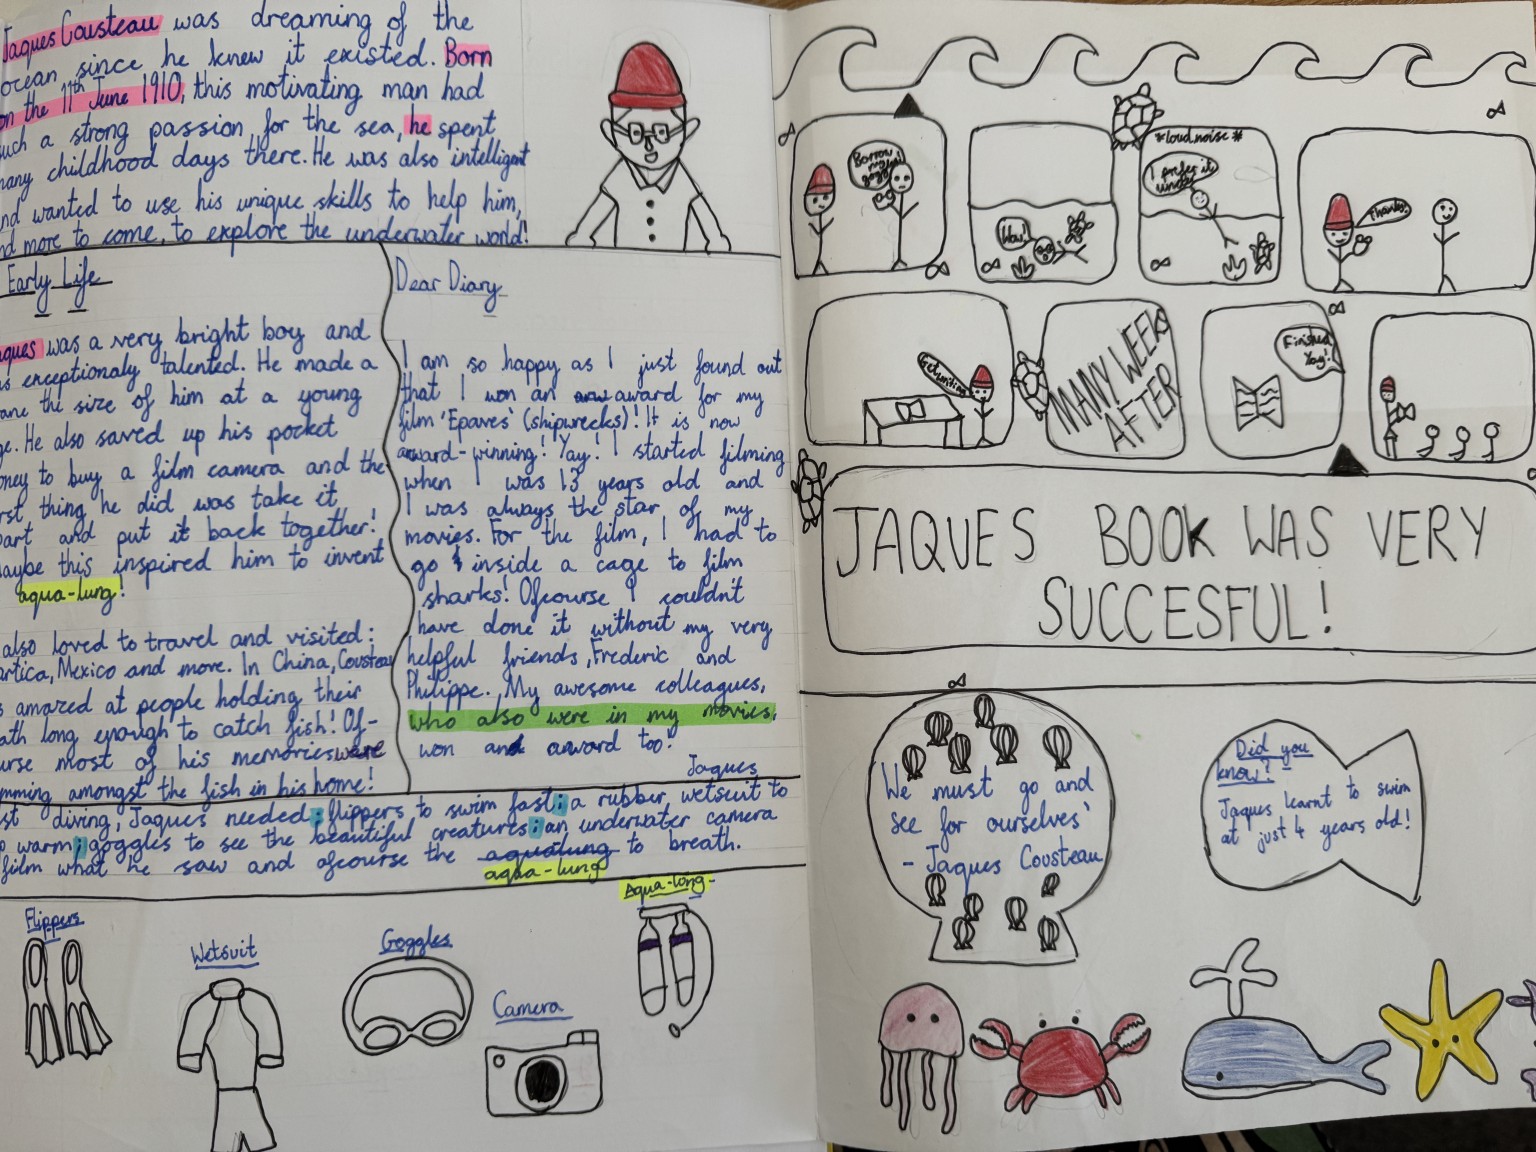 Jaques Cousteau was dreaming of the
ocean since he knew it existed. Born
on the 11th June 1910, this motivating man had
such a strong passion for the sea, he spent
many childhood days there. He was also intelligent
and wanted to use his unique skills to help him,
and more to come, to explore the underwater world!
Early Life
Jaques was a very bright boy and
exceptionaly talented. He made a
the size of him at a young
He also saved up his pocket
money to buy a film camera and the
first thing he did was take it
apart and put it back together!
Maybe this inspired him to invent
aqua-lung!
also loved to travel and visited:
Mexico and more. In China, Cousteau
amazed at people holding their
long enough to catch fish! Of-
most of his memories were
amongst the fish in his home!
Dear Diary
I am so happy as I just found out
that I won an award for my
film 'Epaves' (shipwrecks)! It is now
award-winning! Yay! I started filming
when I was 13 years old and
I was always the star of my
movies. For the film, I had to
go inside a cage to film
sharks! Ofcourse I couldn't
have done it without my very
helpful friends, Frederic and
Philippe. My awesome colleagues,
who also were in my movies,
won an award too!
Jaques
diving, Jaques needed: flippers to swim fast; a rubber wetsuit to
warm; goggles to see the beautiful creatures; an underwater camera
film what he saw and ofcourse the aqualung to breath.
aqua-lung
Flippers
Wetsuit
Goggles
Camera
Aqua-long
Borrow my goggles!
Wow!
*loud noise*
I prefer it under
Thanks!
MANY WEEKS
AFTER
Finished
Yay!
JAQUES BOOK WAS VERY
SUCCESFUL!
We must go and
see for ourselves'
- Jaques Cousteau
Did you
know?
Jaques learnt to swim
at just 4 years old!